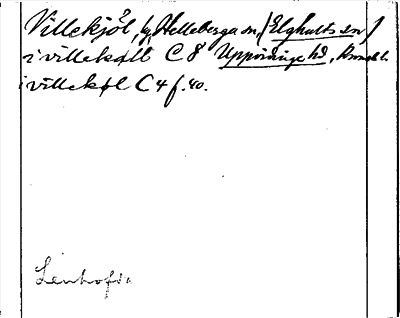 Villekjöl, by, Helleberga sn, (Elghults sn)
i villeköll C 8 Uppvidinge hd, Kronob. l.
i villeköl C 4 f. 40.
Lenhofda